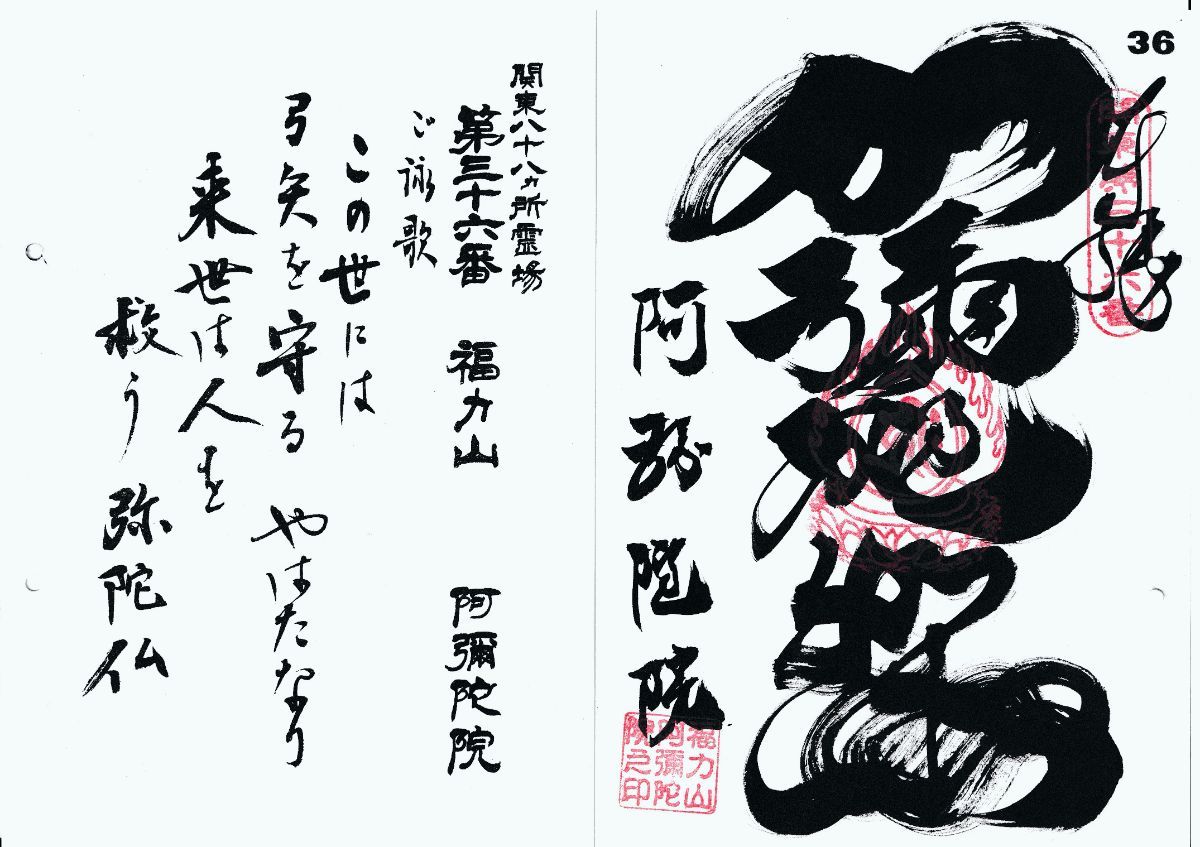 36
奉拝
関東第三十六番
阿弥陀院
福力山
阿彌陀
院之印
関東八十八ヵ所霊場
第三十六番 福力山 阿彌陀院
ご詠歌
この世には
弓矢を守る やはたなり
来世は人を
救う 弥陀仏